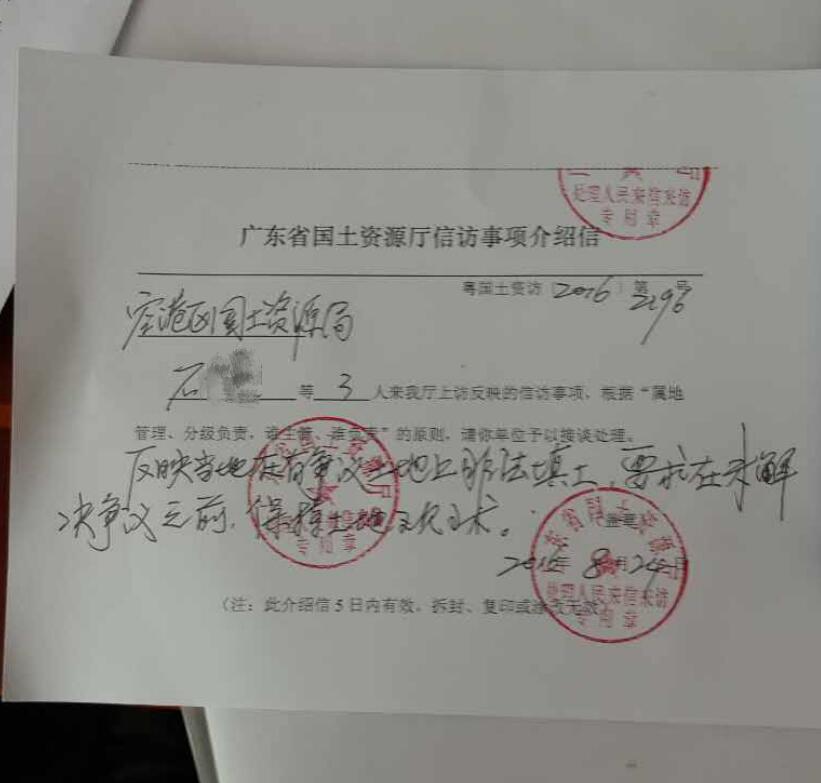 处理人民来信来访
专用章
广东省国土资源厅信访事项介绍信
粤国土资访〔2016〕第2196号
空港区国土资源局
石 等 3 人来我厅上访反映的信访事项,根据“属地
管理、分级负责,谁主管、谁负责”的原则,请你单位予以接谈处理。
反映当地在有争议土地上非法填土,要求在未解
决争议之前,保持土地
2016年8月24日
(注:此介绍信5日内有效,拆封、复印或涂改无效)
专用章
处理人民来信来访
专用章